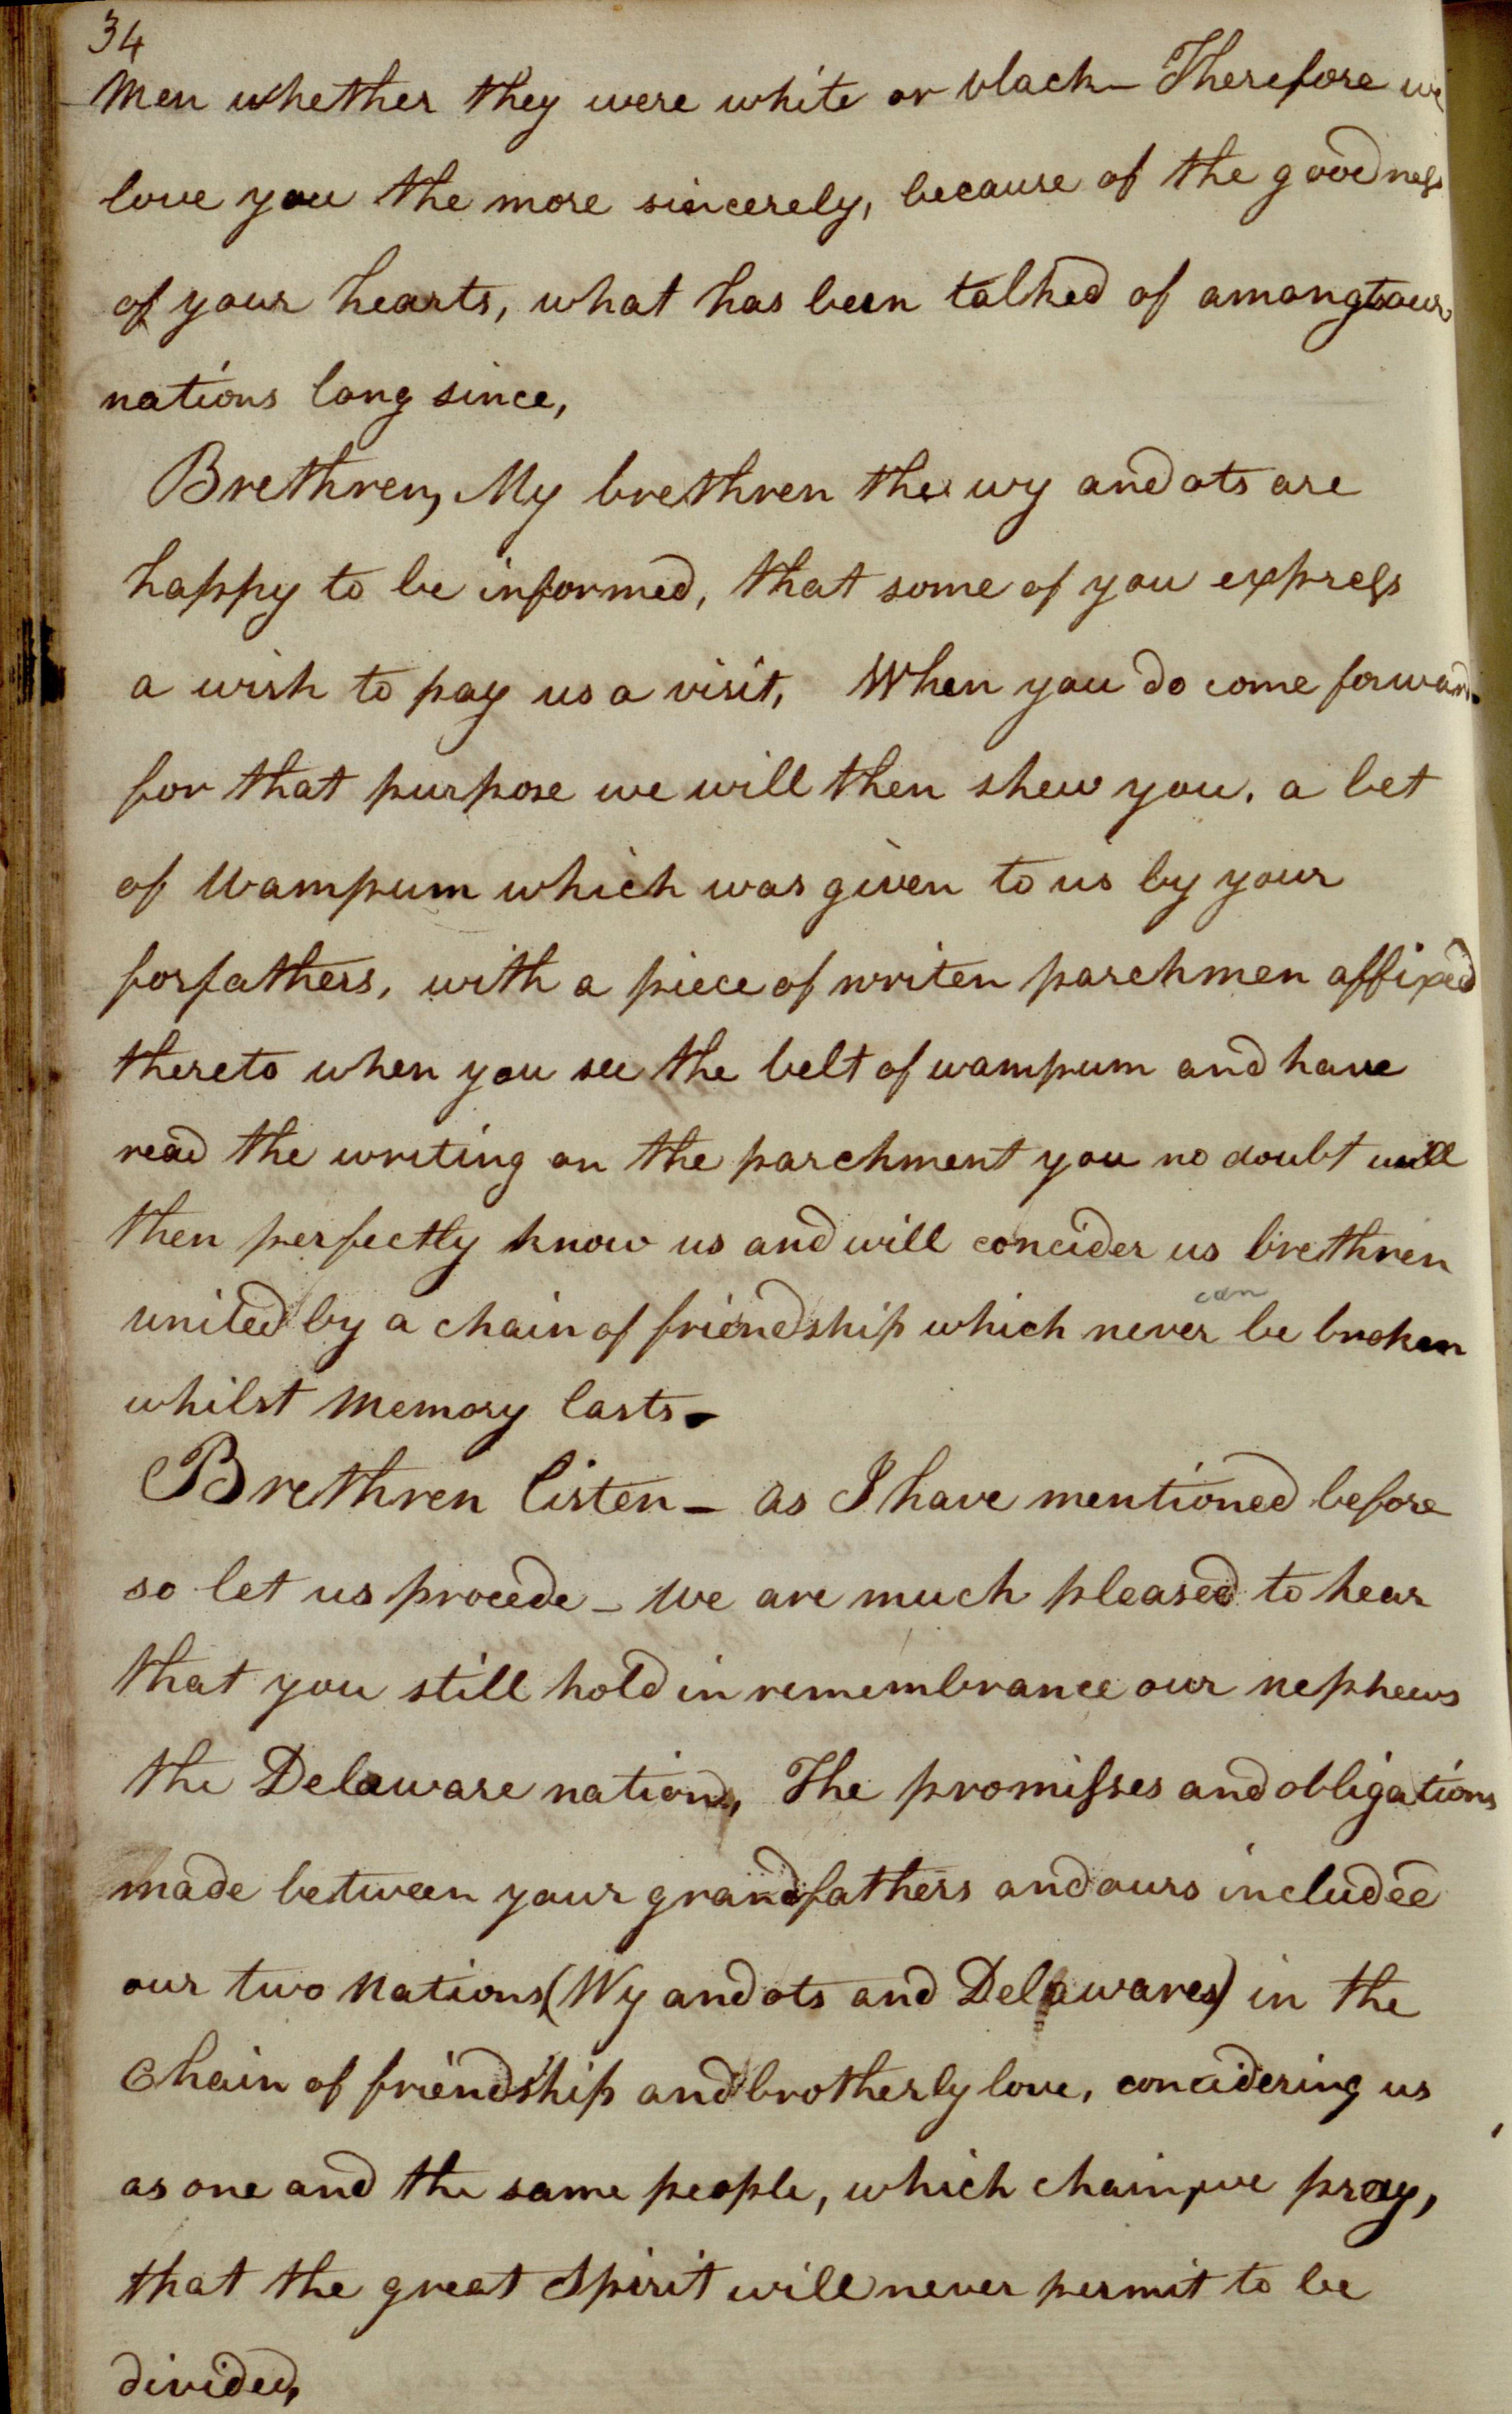 34
Men whether they were white or black - Therefore we
love you the more sincerely, because of the goodness
of your hearts, what has been talked of amongts our
nations long since,
Brethren, My brethren the wyandots are
happy to be informed, that some of you express
a wish to pay us a visit, When you do come forward
for that purpose we will then shew you. a bet
of Wampum which was given to us by your
forfathers, with a piece of writen parchmen affixed
thereto when you see the belt of wampum and have
read the writing on the parchment you no doubt will
then perfectly know us and will concider us brethren
united by a chain of friendship which never can be broken
whilst Memory lasts -
Brethren listen - as I have mentioned before
so let us procede - we are much pleased to hear
that you still hold in remembrance our nephews
the Delaware nation, The promisses and obligations
made between your grandfathers and ours included
our two Nations (Wyandots and Delawares) in the
Chain of friendship and brotherly love, concidering us
as one and the same people, which chain, we pray,
that the great Spirit will never permit to be
divided,